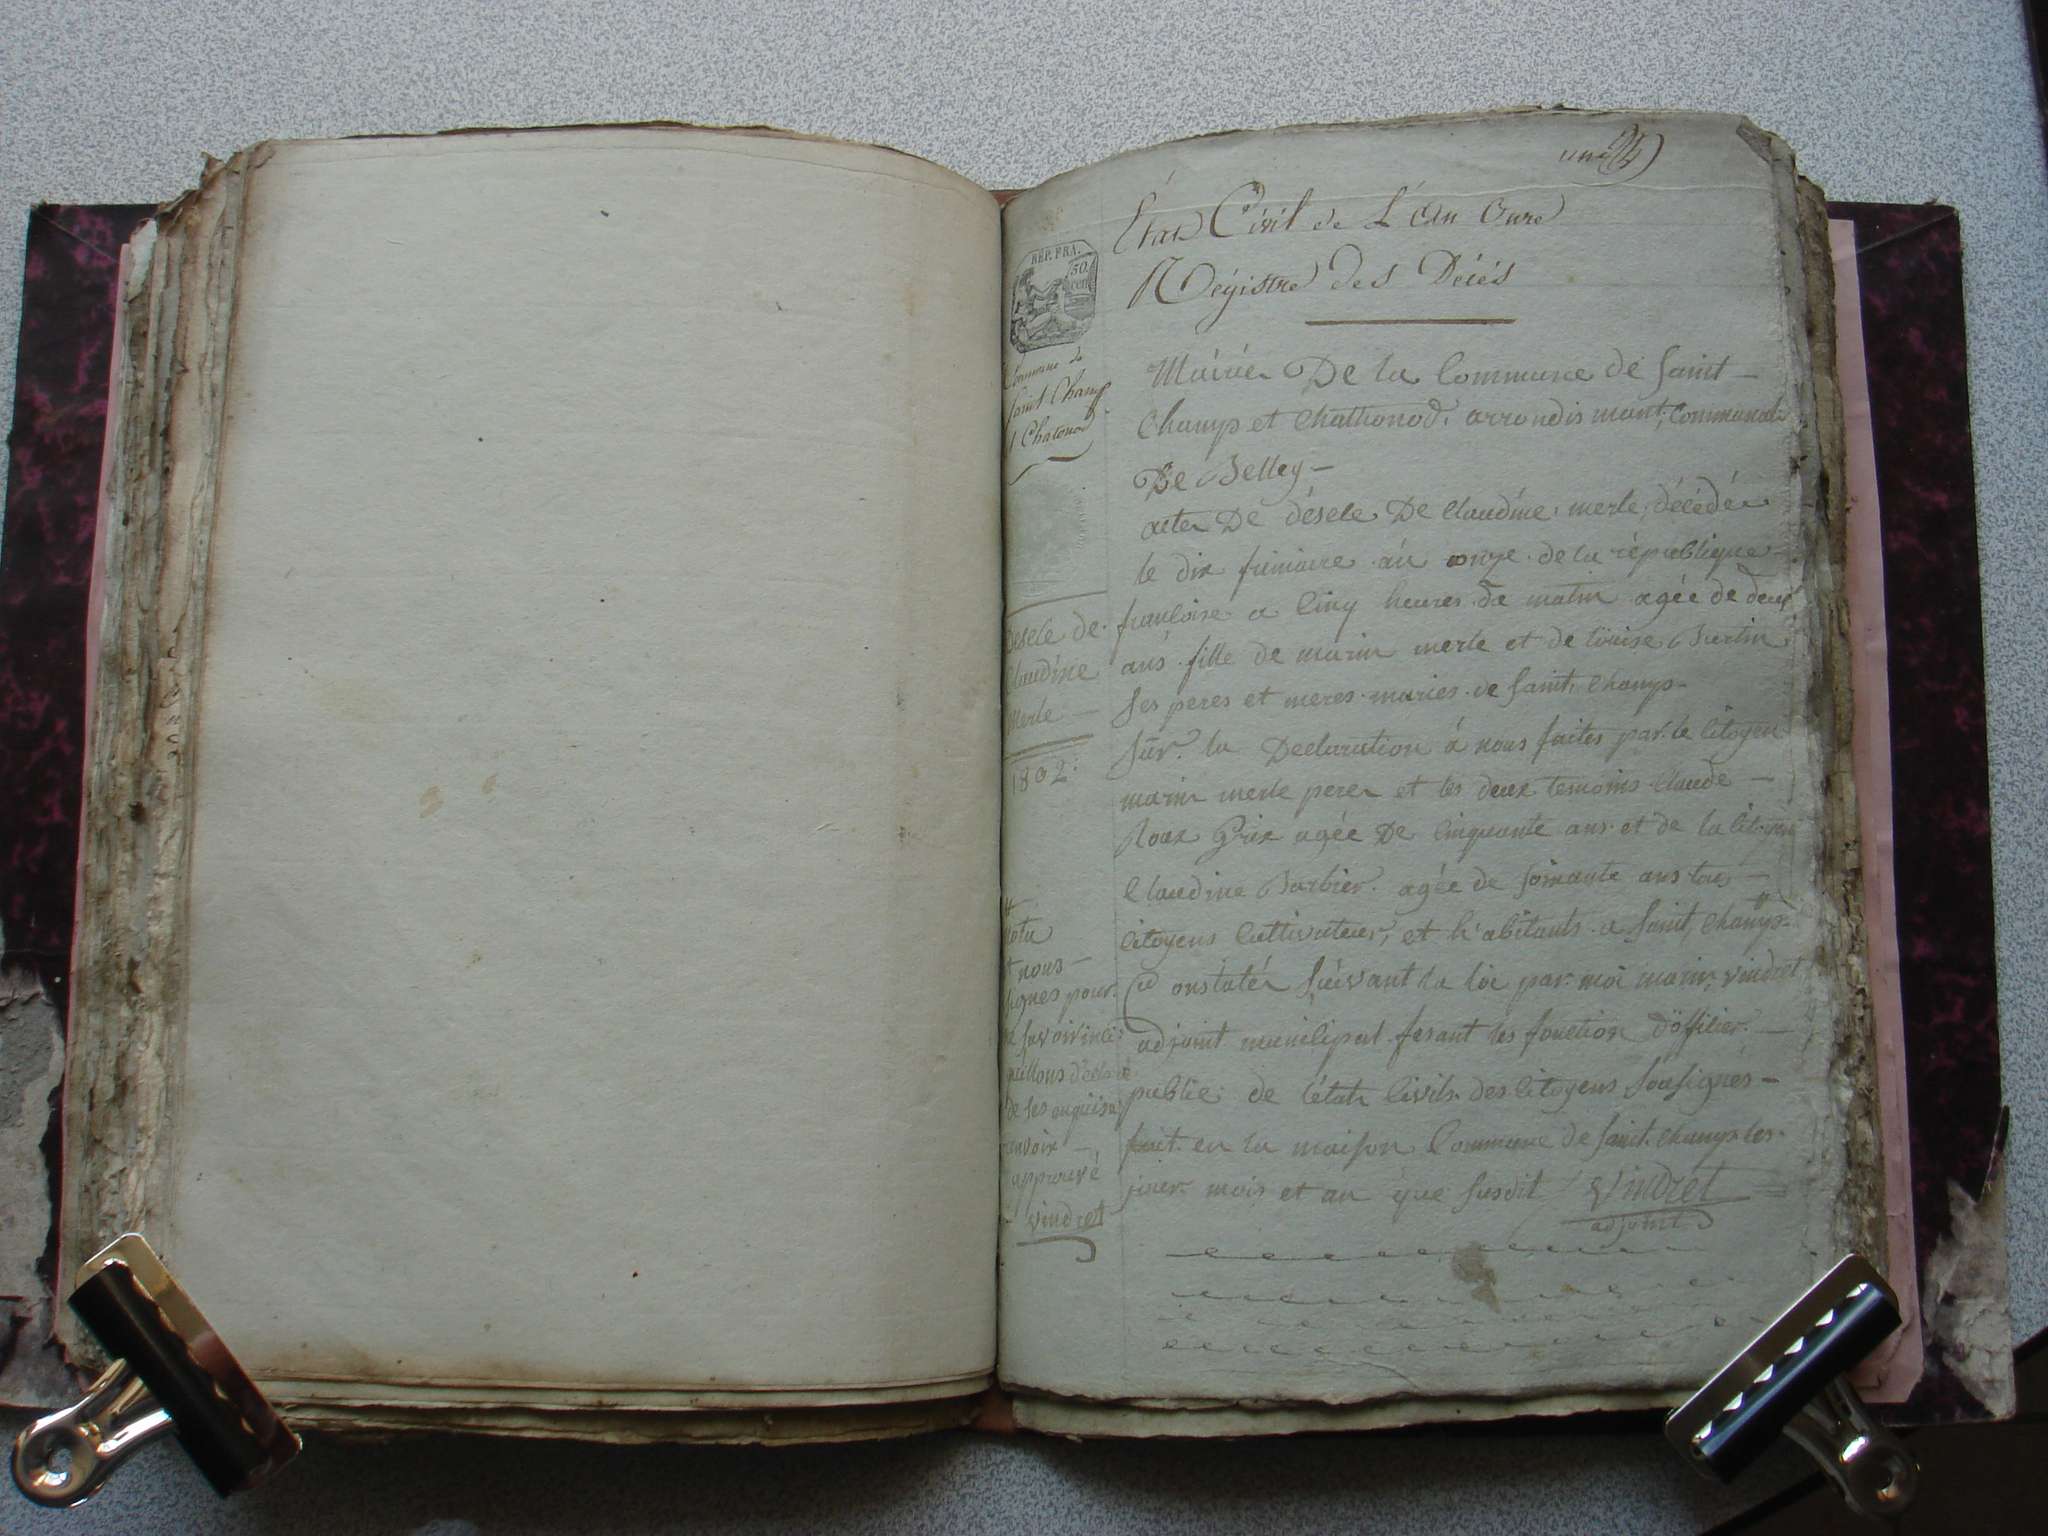 Etat Civil de L'an Onze
Régistre des Décés
REP. FRA.
50
cen
Commune de
Saint Champ
Chatonod
Mairie De la Commune de Saint
Champs et Chathonod. arrondismant, Communale
De Belley
acter De désece De Claudine merle, décédée
le dix frimaire an onze de la république
francoise a Cinq heures de matin agée de deux
ans fille de marin merle et de louise Burtin
Ses peres et meres mariés de Saint, Champs
Sur la Declaration á nous faites par le Citoyen
marin merle perer et les deux temoins Claude
Roux agée De Cinquante ans et de la Citoyen
Claudine Barbier agée de Soixante ans tous
Citoyens Cultivateur, et h'abitants a Saint, Champs
Constatér Suivant la loi par moi marin, vindret
adjoint municipal fesant les fonction d'öfficier
public de l'état Civils des Citoyens Sousignés
fait en la maison Commune de Saint Champs les
jouer mois et an que Susdit Vindret
adjoint
désece de
Claudine
Merle
1802
nota
nous
signes pour
savoir
de ses enquis
avoir
approuvé
vindret